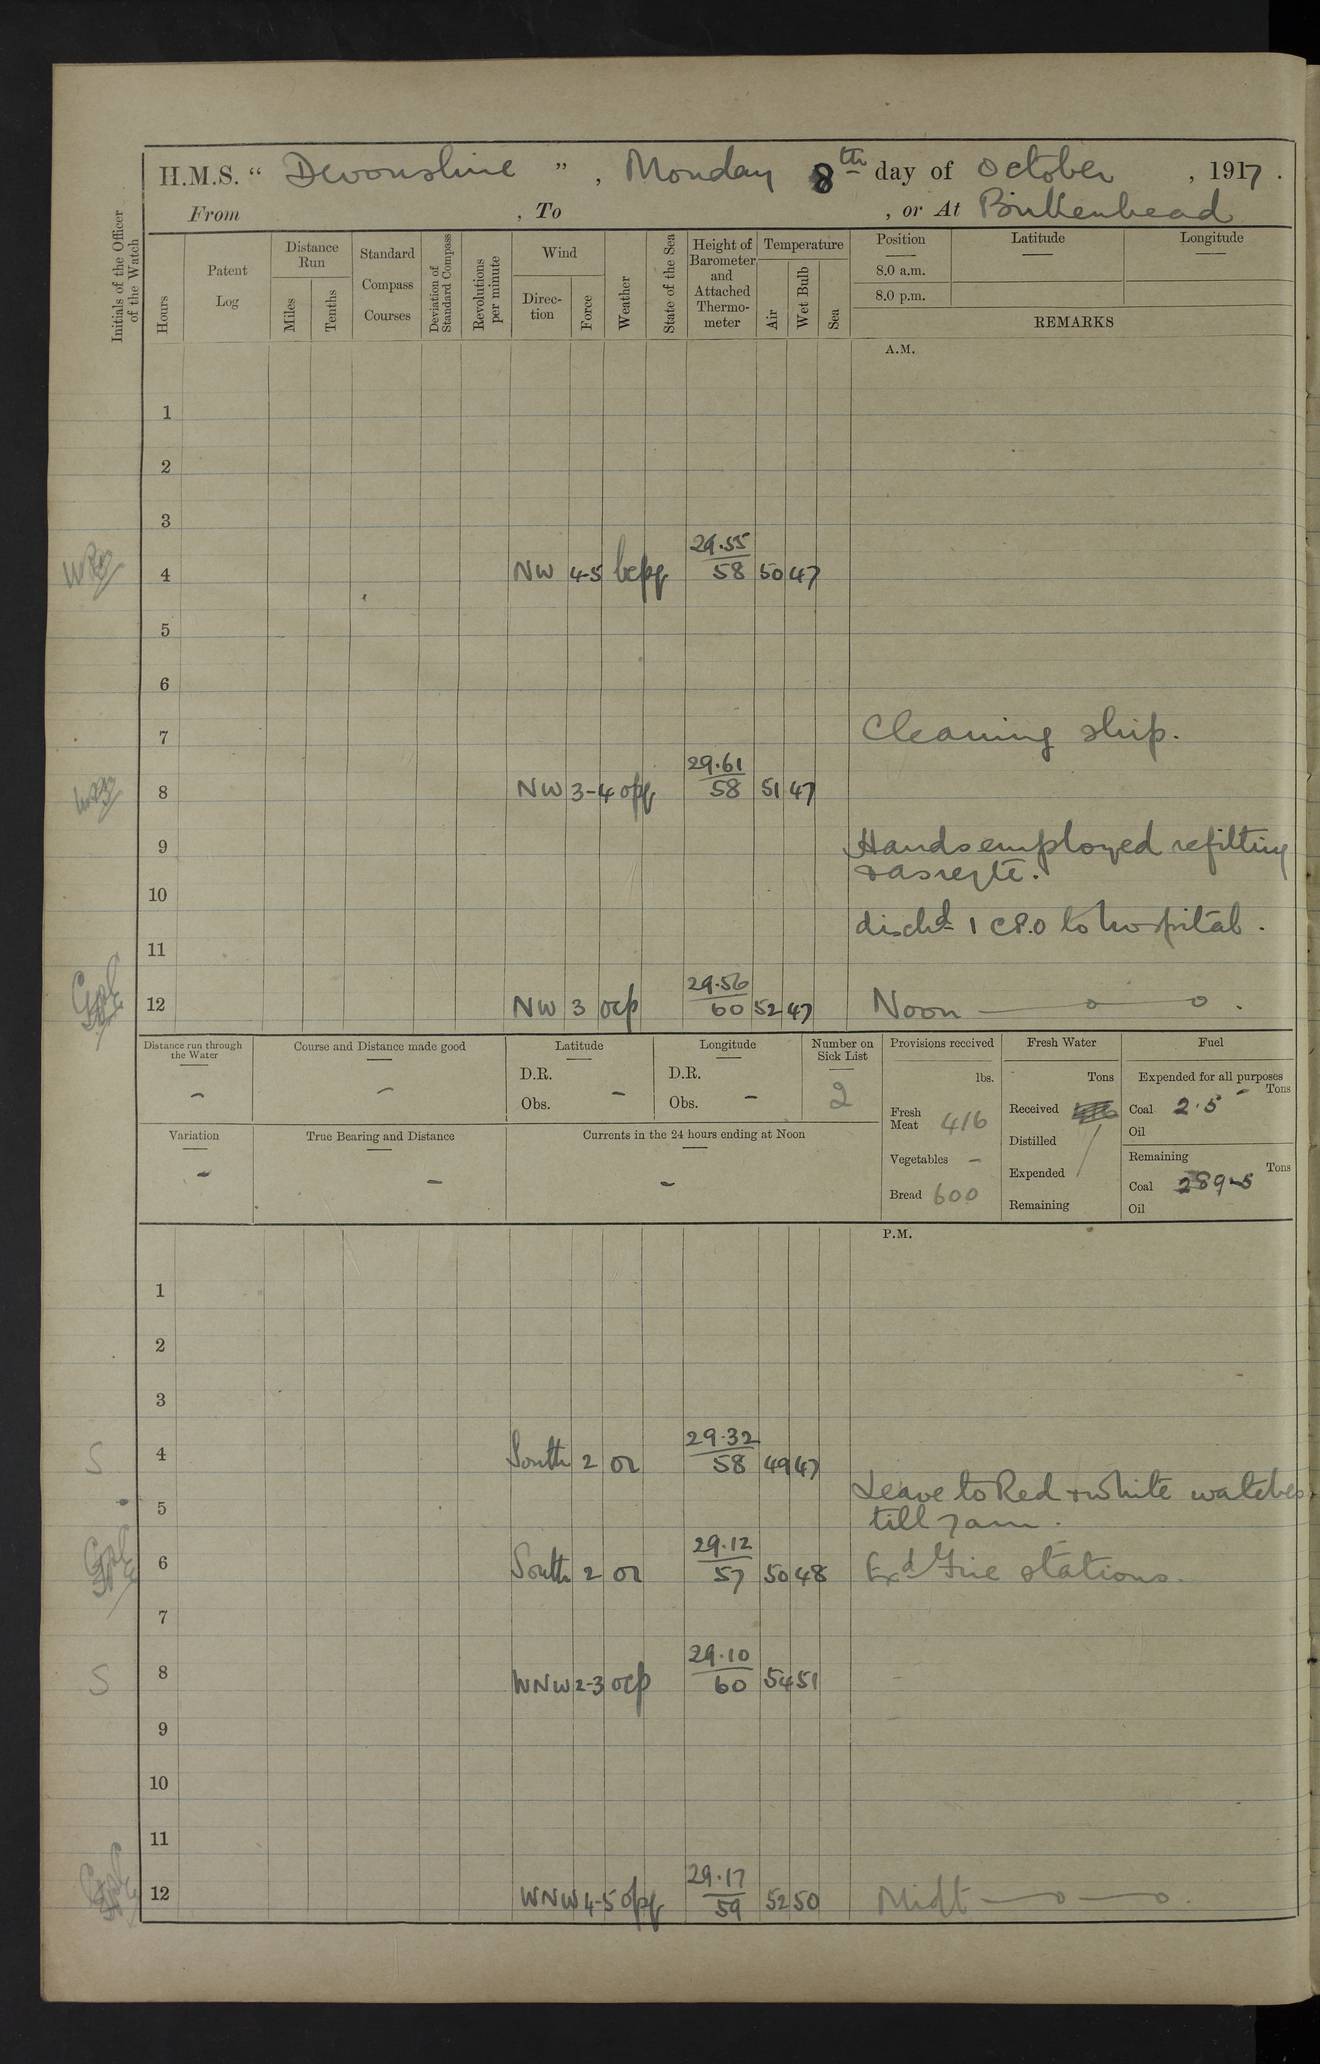 H.M.S. " Devonshire ", Monday 8th day of October, 1917.
From , To , or At Birkenhead
Initials of the Officer of the Watch
Hours
Patent Log
Distance Run
Miles
Tenths
Standard Compass Courses
Deviation of Standard Compass
Revolutions per minute
Wind
Direc-tion
Force
Weather
State of the Sea
Height of Barometer and Attached Thermo-meter
Temperature
Air
Wet Bulb
Sea
Position
Latitude
Longitude
8.0 a.m.
8.0 p.m.
REMARKS
A.M.
1
2
3
29.55
4 NW 4-5 bcpq 58 50 47
5
6
7 Cleaning ship.
29.61
8 NW 3-4 opq 58 51 47
9 Hands employed refitting
& as reqte.
10
dischd 1 CPO to hospital.
11
29.56
12 NW 3 ocp 60 52 47 Noon
Distance run through the Water
-
Course and Distance made good
-
Latitude
D.R.
Obs. -
Longitude
D.R.
Obs. -
Number on Sick List
2
Variation
-
True Bearing and Distance
-
Currents in the 24 hours ending at Noon
-
Provisions received
lbs.
Fresh Meat 416
Vegetables -
Bread 600
Fresh Water
Tons
Received
Distilled
Expended
Remaining
Fuel
Expended for all purposes
Tons
Coal 2.5
Oil
Remaining
Tons
Coal 289.5
Oil
P.M.
1
2
3
29.32
S 4 South 2 or 58 49 47
Leave to Red & White watches
5 till 7 am.
29.12
6 South 2 or 57 50 48 Exd Fire stations.
7
29.10
S 8 WNW 2-3 ocp 60 54 51
9
10
11
29.17
12 WNW 4-5 opq 59 52 50 Midt